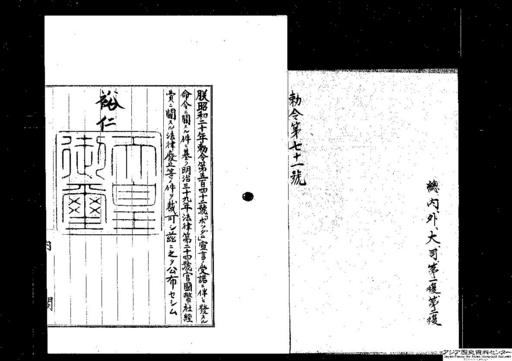 總、内外、大、司、第一復、第二復
勅令第七十一號
朕昭和二十年勅令第五百四十二號「ポツダム」宣言ノ受諾ニ伴ヒ發スル
命令ニ關スル件ニ基ク明治三十九年法律第二十四號官國幣社經
費ニ關スル法律廢止等ノ件ヲ裁可シ茲ニ之ヲ公布セシム
裕仁
天皇
御璽
内閣
アジア歴史資料センター